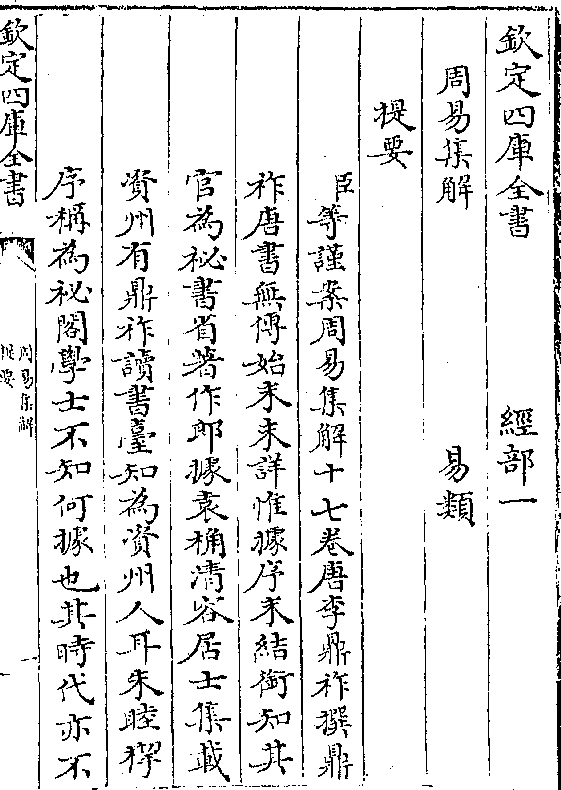 欽定四庫全書　經部一
周易集解　易類
提要
臣等謹案周易集解十七卷唐李鼎祚撰鼎
祚唐書無傳始末未詳惟據序末結銜知其
官為祕書省著作郎據袁桷清容居士集載
資州有鼎祚讀書臺知為資州人耳朱睦㮮
序稱為祕閣學士不知何據也其時代亦不
欽定四庫全書
周易集解
提要